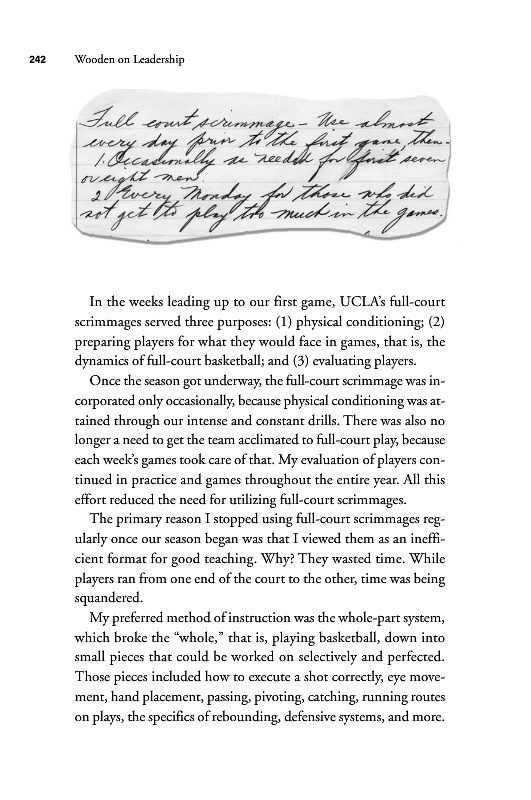 242 Wooden on Leadership
Full court scrimmage – Use almost
every day prior to the first game, then.
1. Occasionally as needed for first seven
or eight men.
2. Every Monday for those who did
not get to play too much in the games.
In the weeks leading up to our first game, UCLA’s full-court
scrimmages served three purposes: (1) physical conditioning; (2)
preparing players for what they would face in games, that is, the
dynamics of full-court basketball; and (3) evaluating players.
Once the season got underway, the full-court scrimmage was in-
corporated only occasionally, because physical conditioning was at-
tained through our intense and constant drills. There was also no
longer a need to get the team acclimated to full-court play, because
each week’s games took care of that. My evaluation of players con-
tinued in practice and games throughout the entire year. All this
effort reduced the need for utilizing full-court scrimmages.
The primary reason I stopped using full-court scrimmages reg-
ularly once our season began was that I viewed them as an ineffi-
cient format for good teaching. Why? They wasted time. While
players ran from one end of the court to the other, time was being
squandered.
My preferred method of instruction was the whole-part system,
which broke the “whole,” that is, playing basketball, down into
small pieces that could be worked on selectively and perfected.
Those pieces included how to execute a shot correctly, eye move-
ment, hand placement, passing, pivoting, catching, running routes
on plays, the specifics of rebounding, defensive systems, and more.